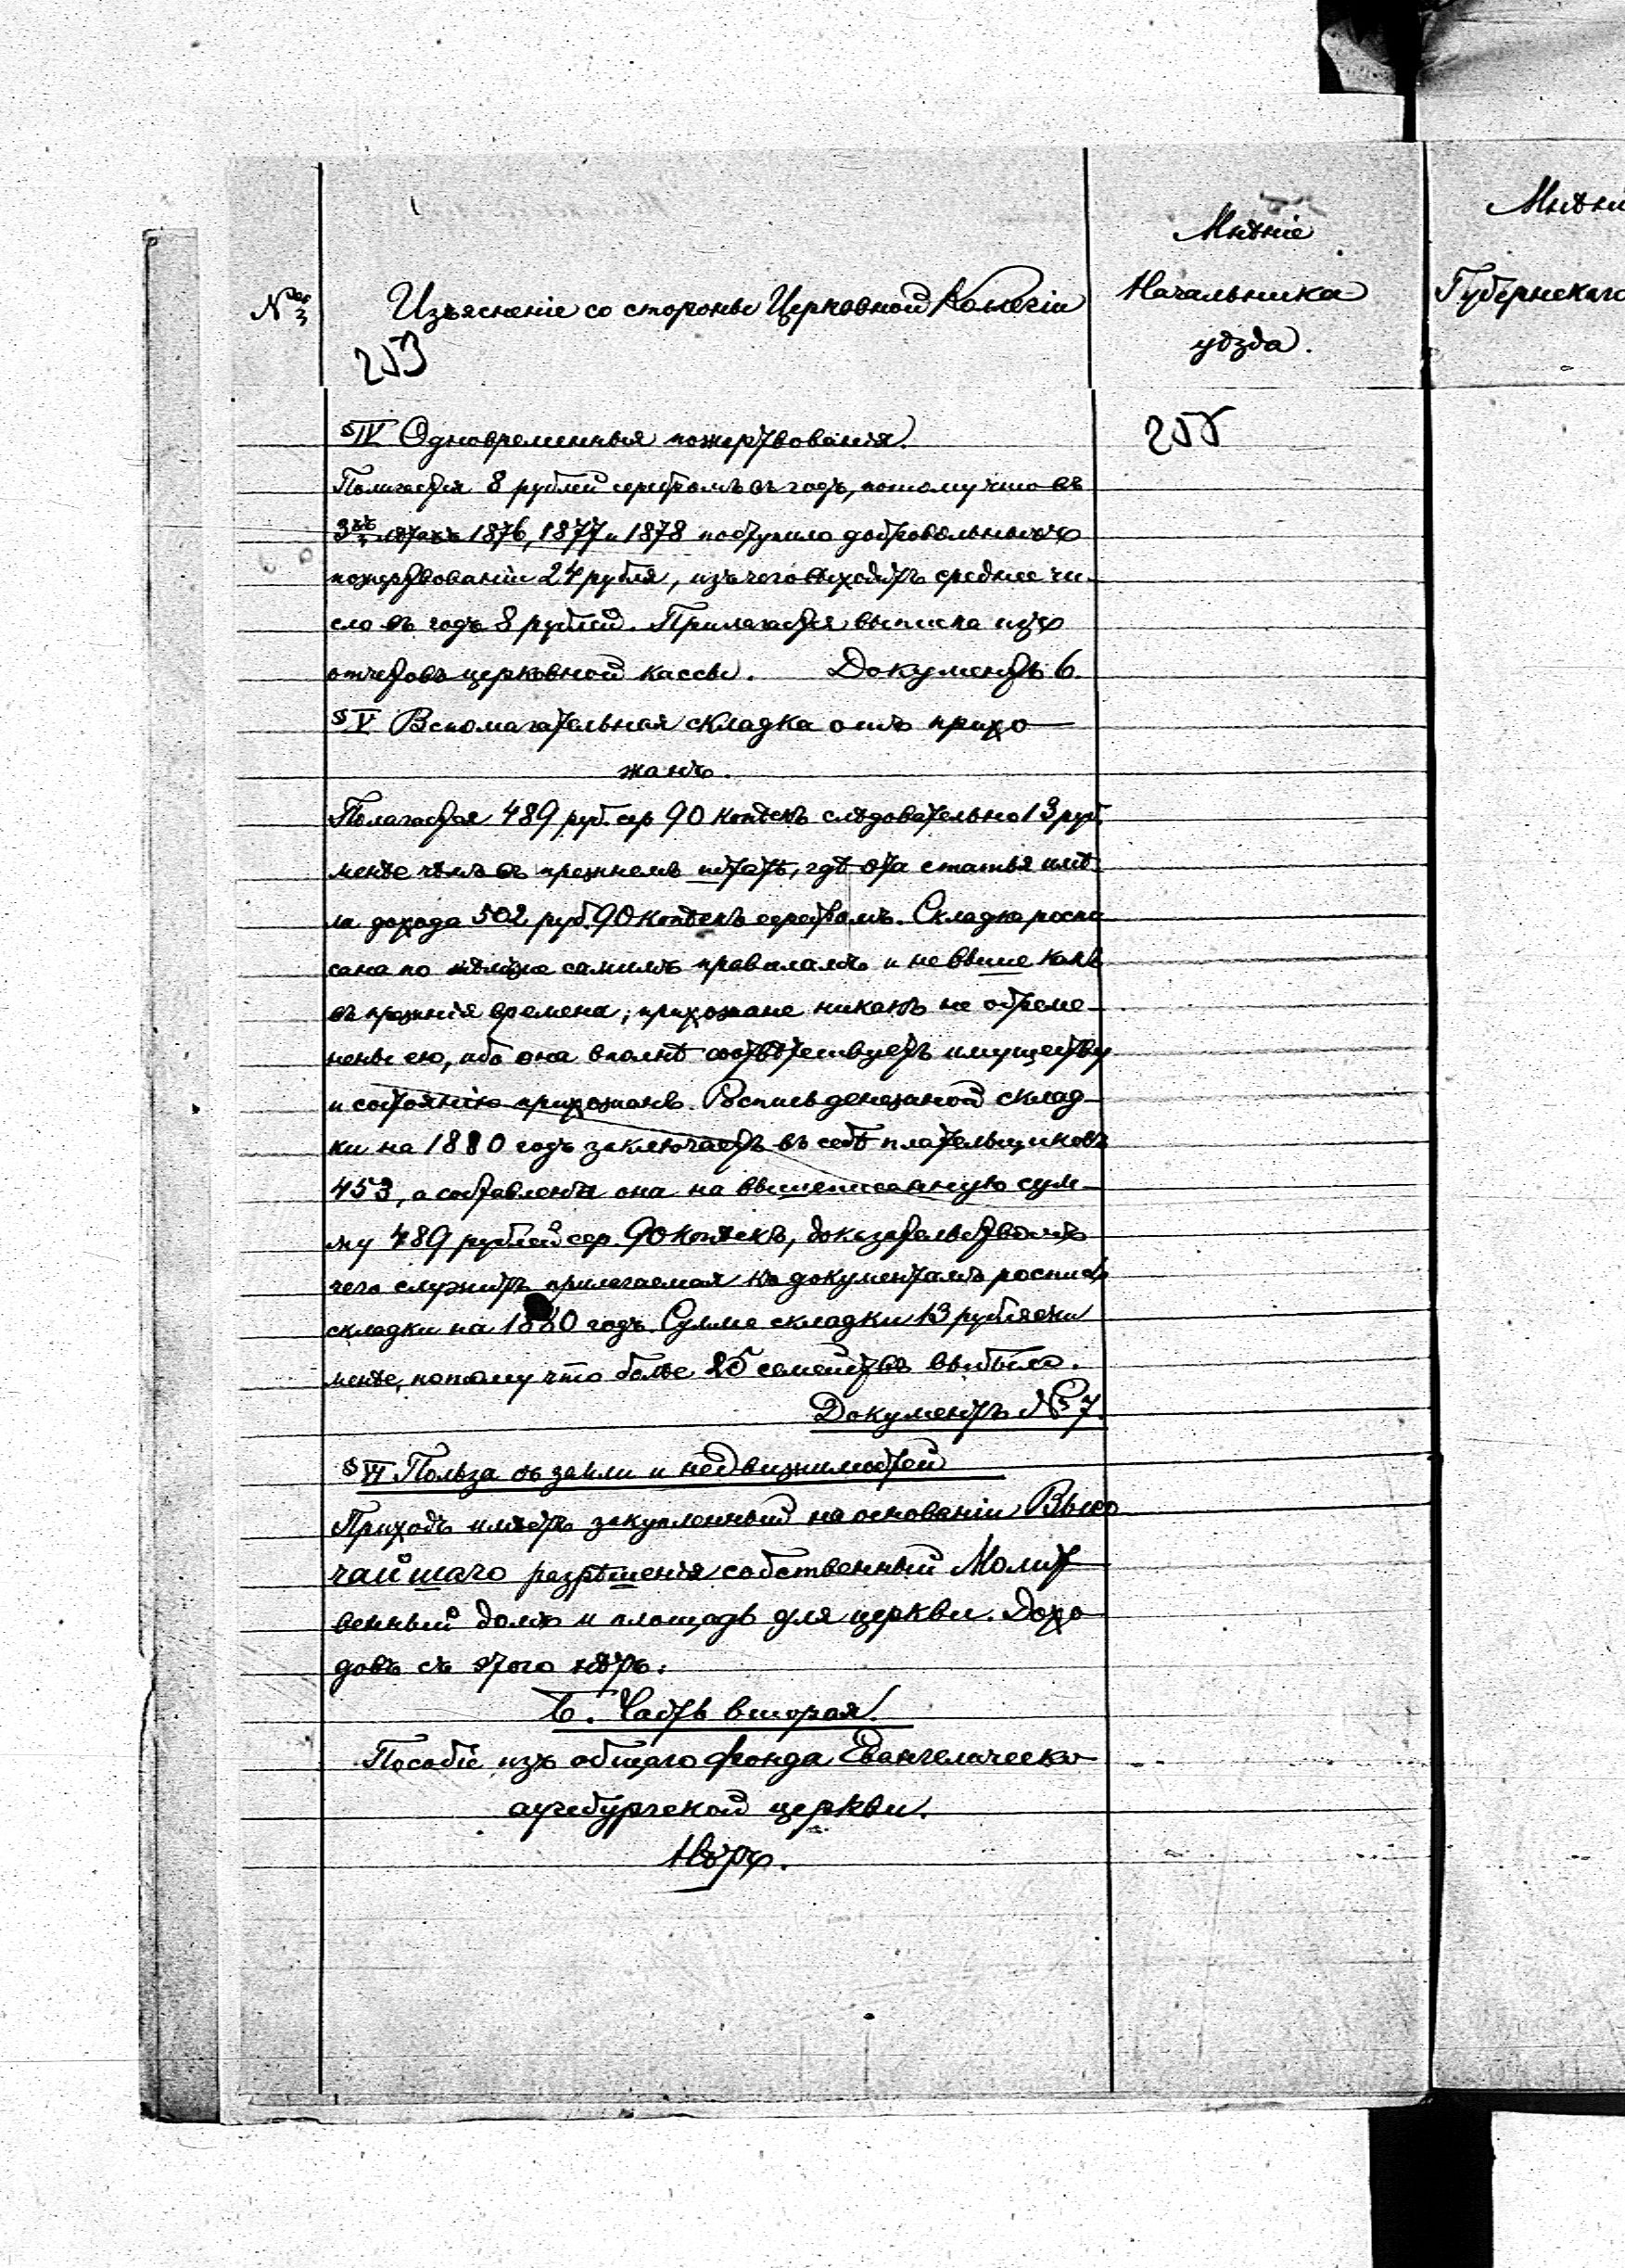 Мнѣніе
Мнѣні
№
Изъясненіе со стороны Церковной Колегіи
Начальника
Губернскаго
уѣзда.
253
255
§IV Одновременныя пожертвованія.
Полагается 8 рублей серебромъ въ годъ, потому что въ
3хъ лѣтахъ 1876, 1877 и 1878 поступило добровольныхъ
пожертвованіи 24 рубля, изъ чего выходитъ среднее чи-
сло въ годъ 8 рублей. Прилагается выписка изъ
отчетовъ церковной кассы. Документъ 6.
§V Вспомагательная складка отъ прихо-
жанъ.
Полагается 489 руб. сер 90 копѣекъ слѣдовательно 13 руб.
менѣе чѣмъ въ прежнемъ штатѣ, гдѣ эта статья имѣ-
ла дохода 502 руб. 90 копѣекъ серебромъ. Складка роспи
сана по тѣмъже самимъ правиламъ и не выше какъ
въ прежнія времена; прихожане никакъ не обреме-
нены ею, ибо она вполнѣ соотвѣтствуетъ имуществу
и состоянію прихожанъ. Роспись денежной склад-
ки на 1880 годъ заключаетъ въ себѣ плательщиковъ
453, а составлена она на вышеписанную сум-
му 489 рублей сер 90 копѣекъ, доказательствомъ
чего служитъ прилагаемая къ документамъ роспись
складки на 1880 годъ. Сумма складки 13 рублями
менѣе, потому что болѣе 25 семействъ выбыло.
Документъ № 7.
§VI Польза съ земли и недвижимостей
Приходъ имѣетъ закупленный на основаніи Высо
чайшаго разрѣшенія собственный Молит-
венный домъ и площадь для церкви. Дохо
довъ съ этого нѣтъ.
Б. Часть вторая.
Пособіе изъ общаго фонда Евангелическо-
аугсбургской церкви.
Нѣтъ.